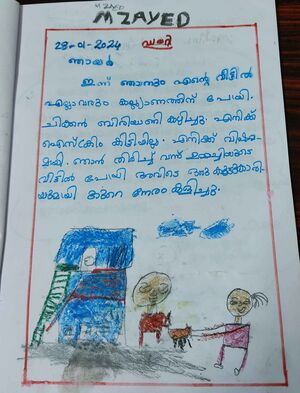 M ZAYED
M ZAYED
28-01-2024
ഡയറി
ഞായർ
ഇന്ന് ഞാനും എന്റെ വീട്ടിൽ
എല്ലാവരും കല്യാണത്തിന് പോയി.
ചിക്കൻ ബിരിയാണി കഴിച്ചു. എനിക്ക്
ഐസ്ക്രീം കിട്ടിയില്ല. എനിക്ക് വിഷമ
മായി. ഞാൻ തിരിച്ച് വന്ന്
വീട്ടിൽ പോയി അവിടെ ഒരു കൂട്ടുകാരി
യുമായി കുറെ നേരം കളിച്ചു.